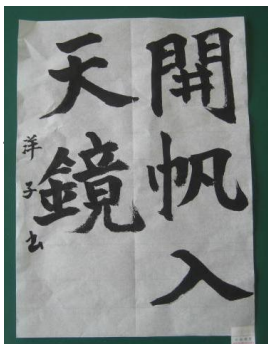 開帆入
天鏡
洋子書